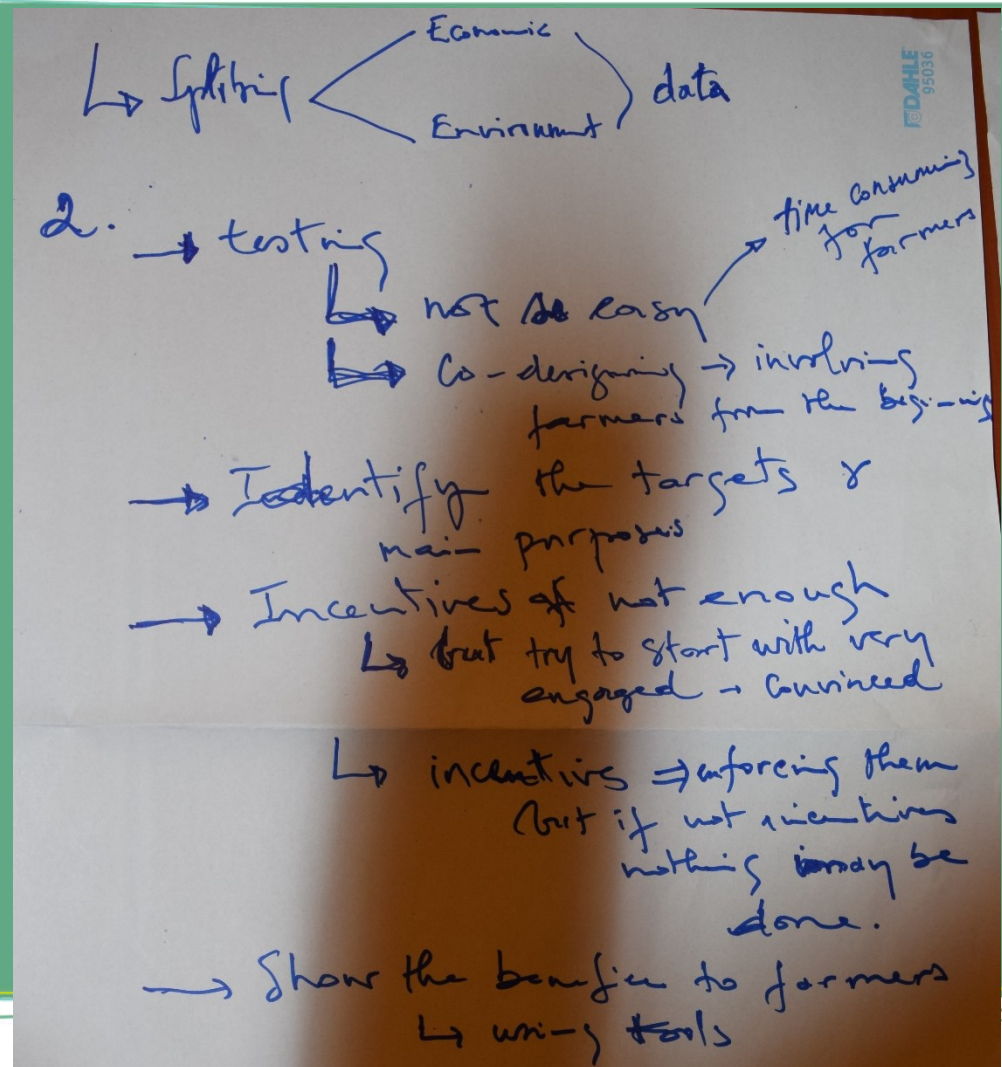 Economic
↳ Splitting data
Environment
DAHLE
95036
time consuming
for
farmers
2. → testing
↳ not easy
↳ Co-designing → involving
farmers from the begining
→ Identify the targets &
main purposes
→ Incentives not enough
↳ but try to start with very
engaged → convinced
↳ incentives ⇒ enforcing them
but if not incentives
nothing may be
done.
→ Show the benefits to farmers
↳ using tools